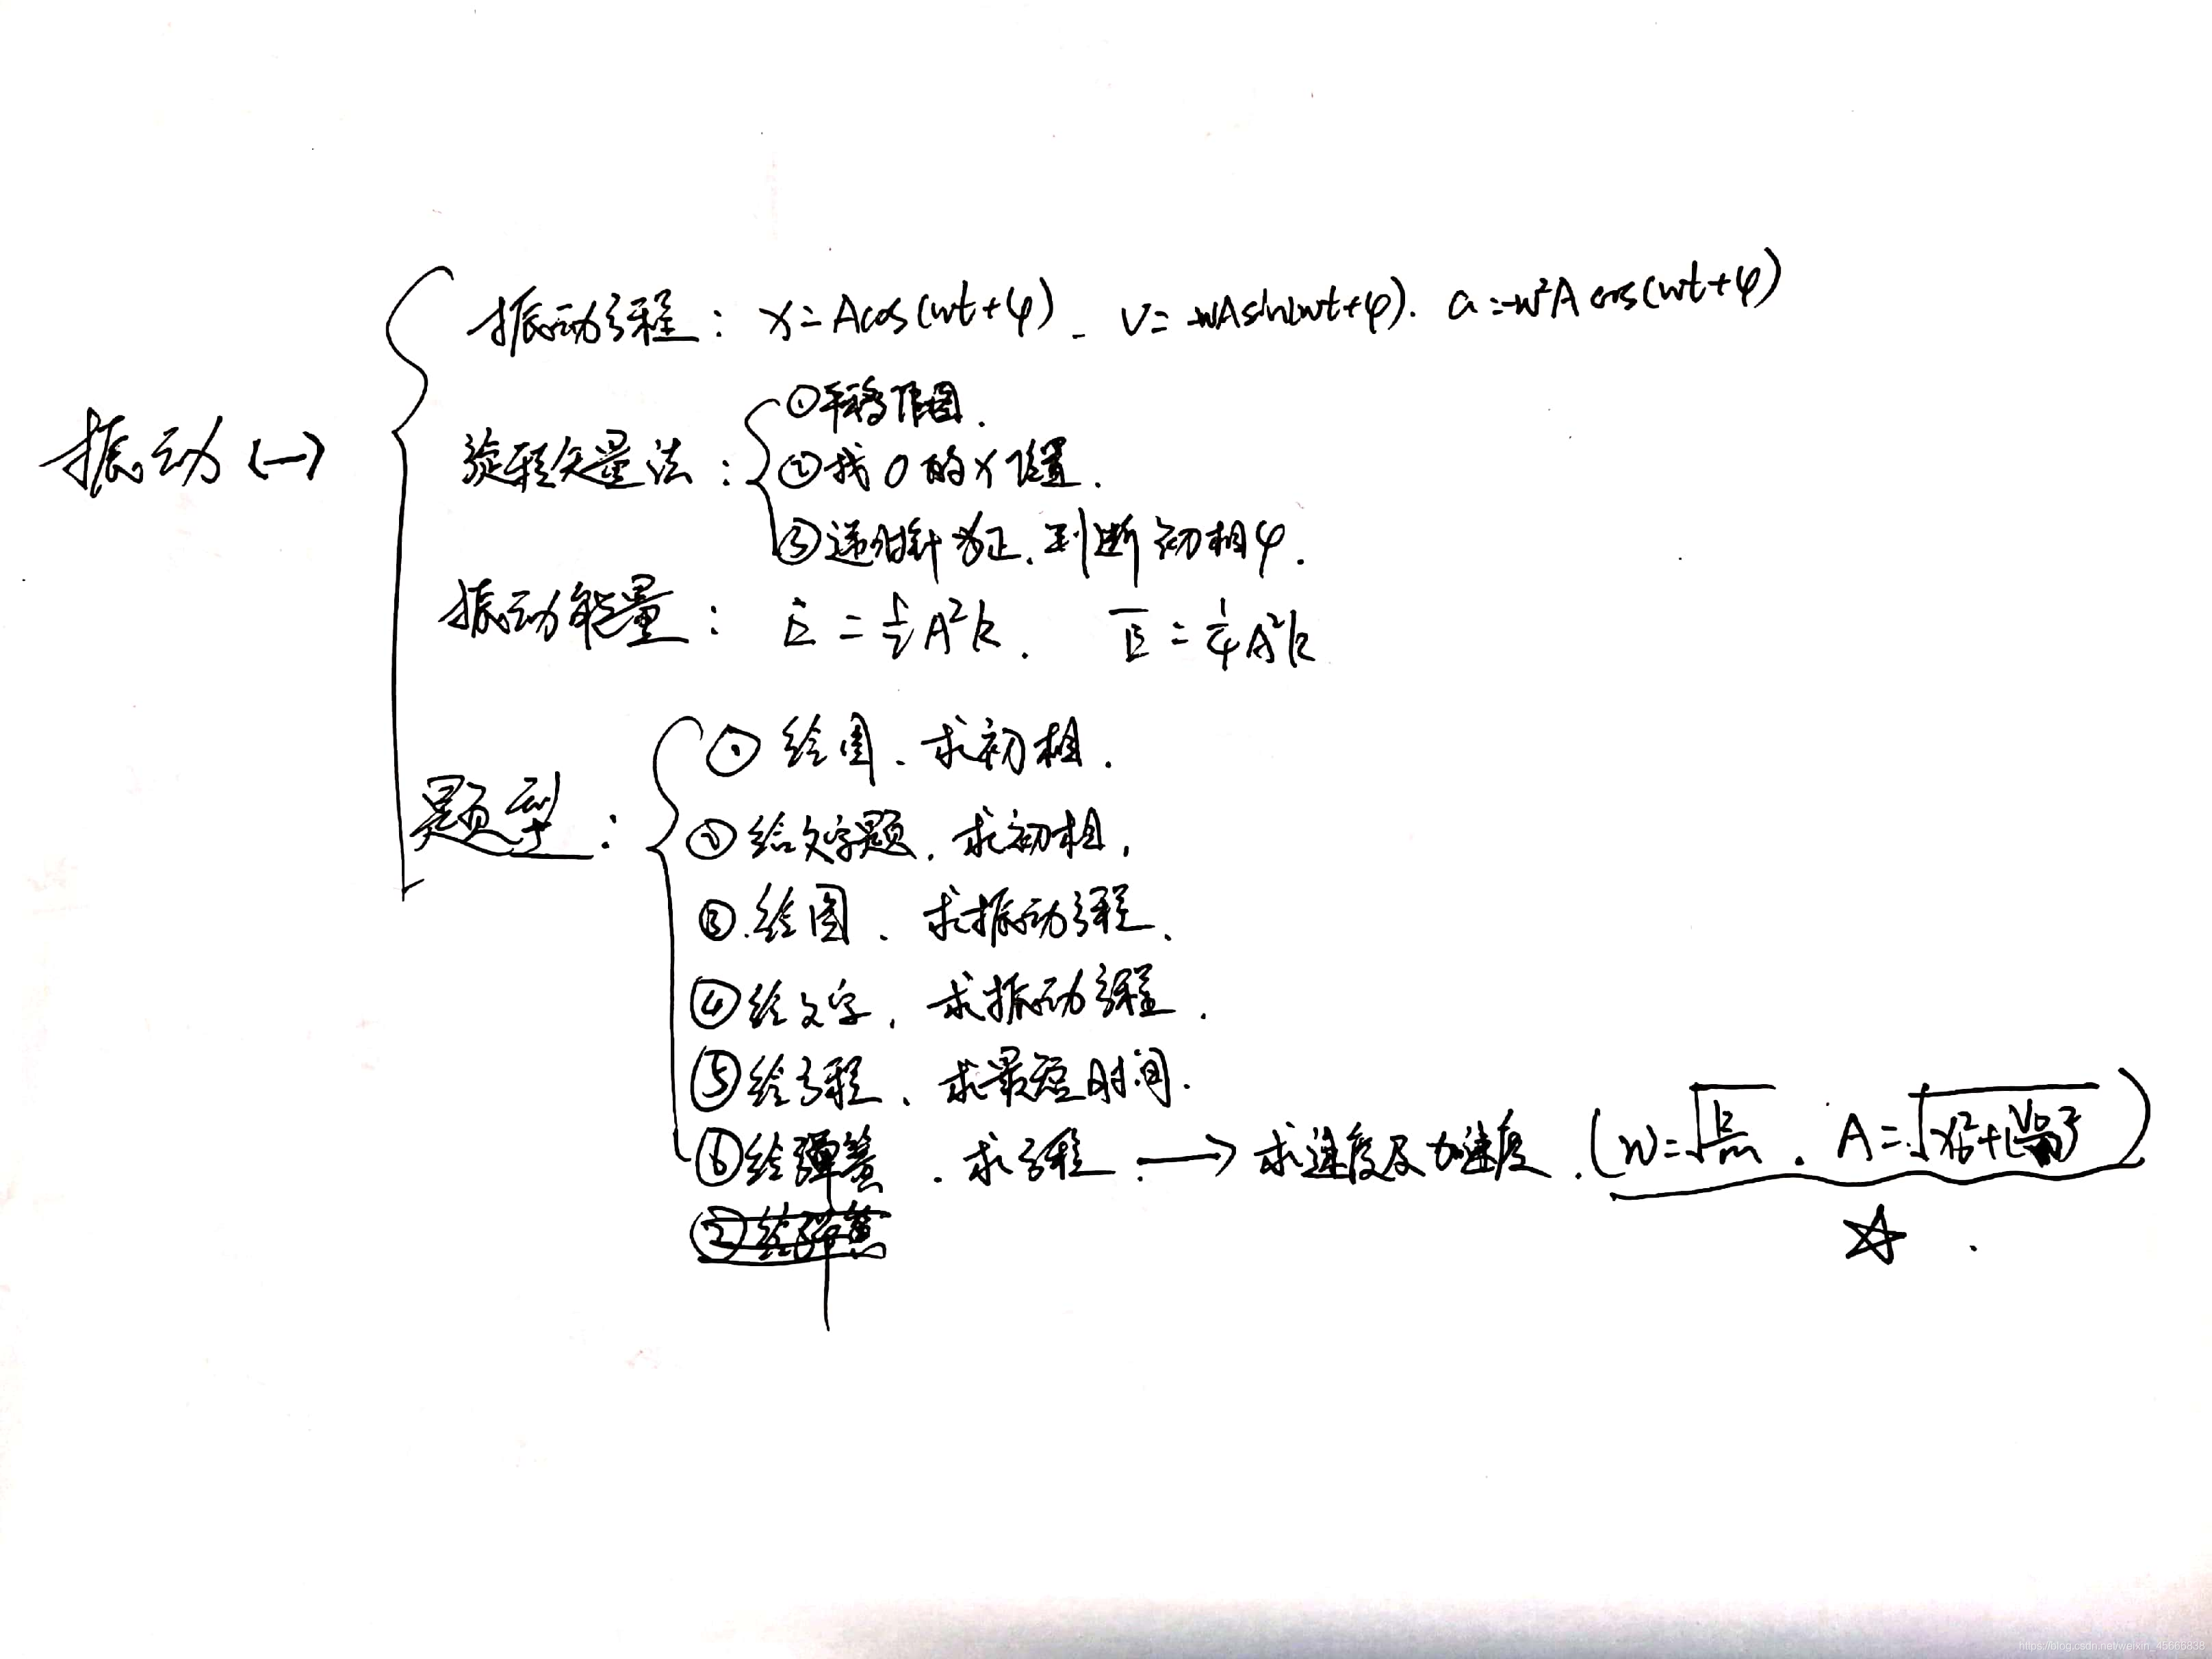 振动(一)
振动方程: x=Acos(wt+φ). v=-wAsin(wt+φ). a=-w²Acos(wt+φ)
旋转矢量法:
①平移作图.
②找0的x位置.
③逆时针为正.判断初相φ.
振动能量: E=½A²k. E̅=¼A²k
题型:
① 给图、求初相.
② 给文字题.求初相.
③.给图、求振动方程、
④给文字、求振动方程.
⑤给方程、求最短时间.
⑥给弹簧.求方程.→求速度及加速度.(w=√(k/m). A=√(x₀²+(v₀/w)²))
☆.
https://blog.csdn.net/weixin_45665838